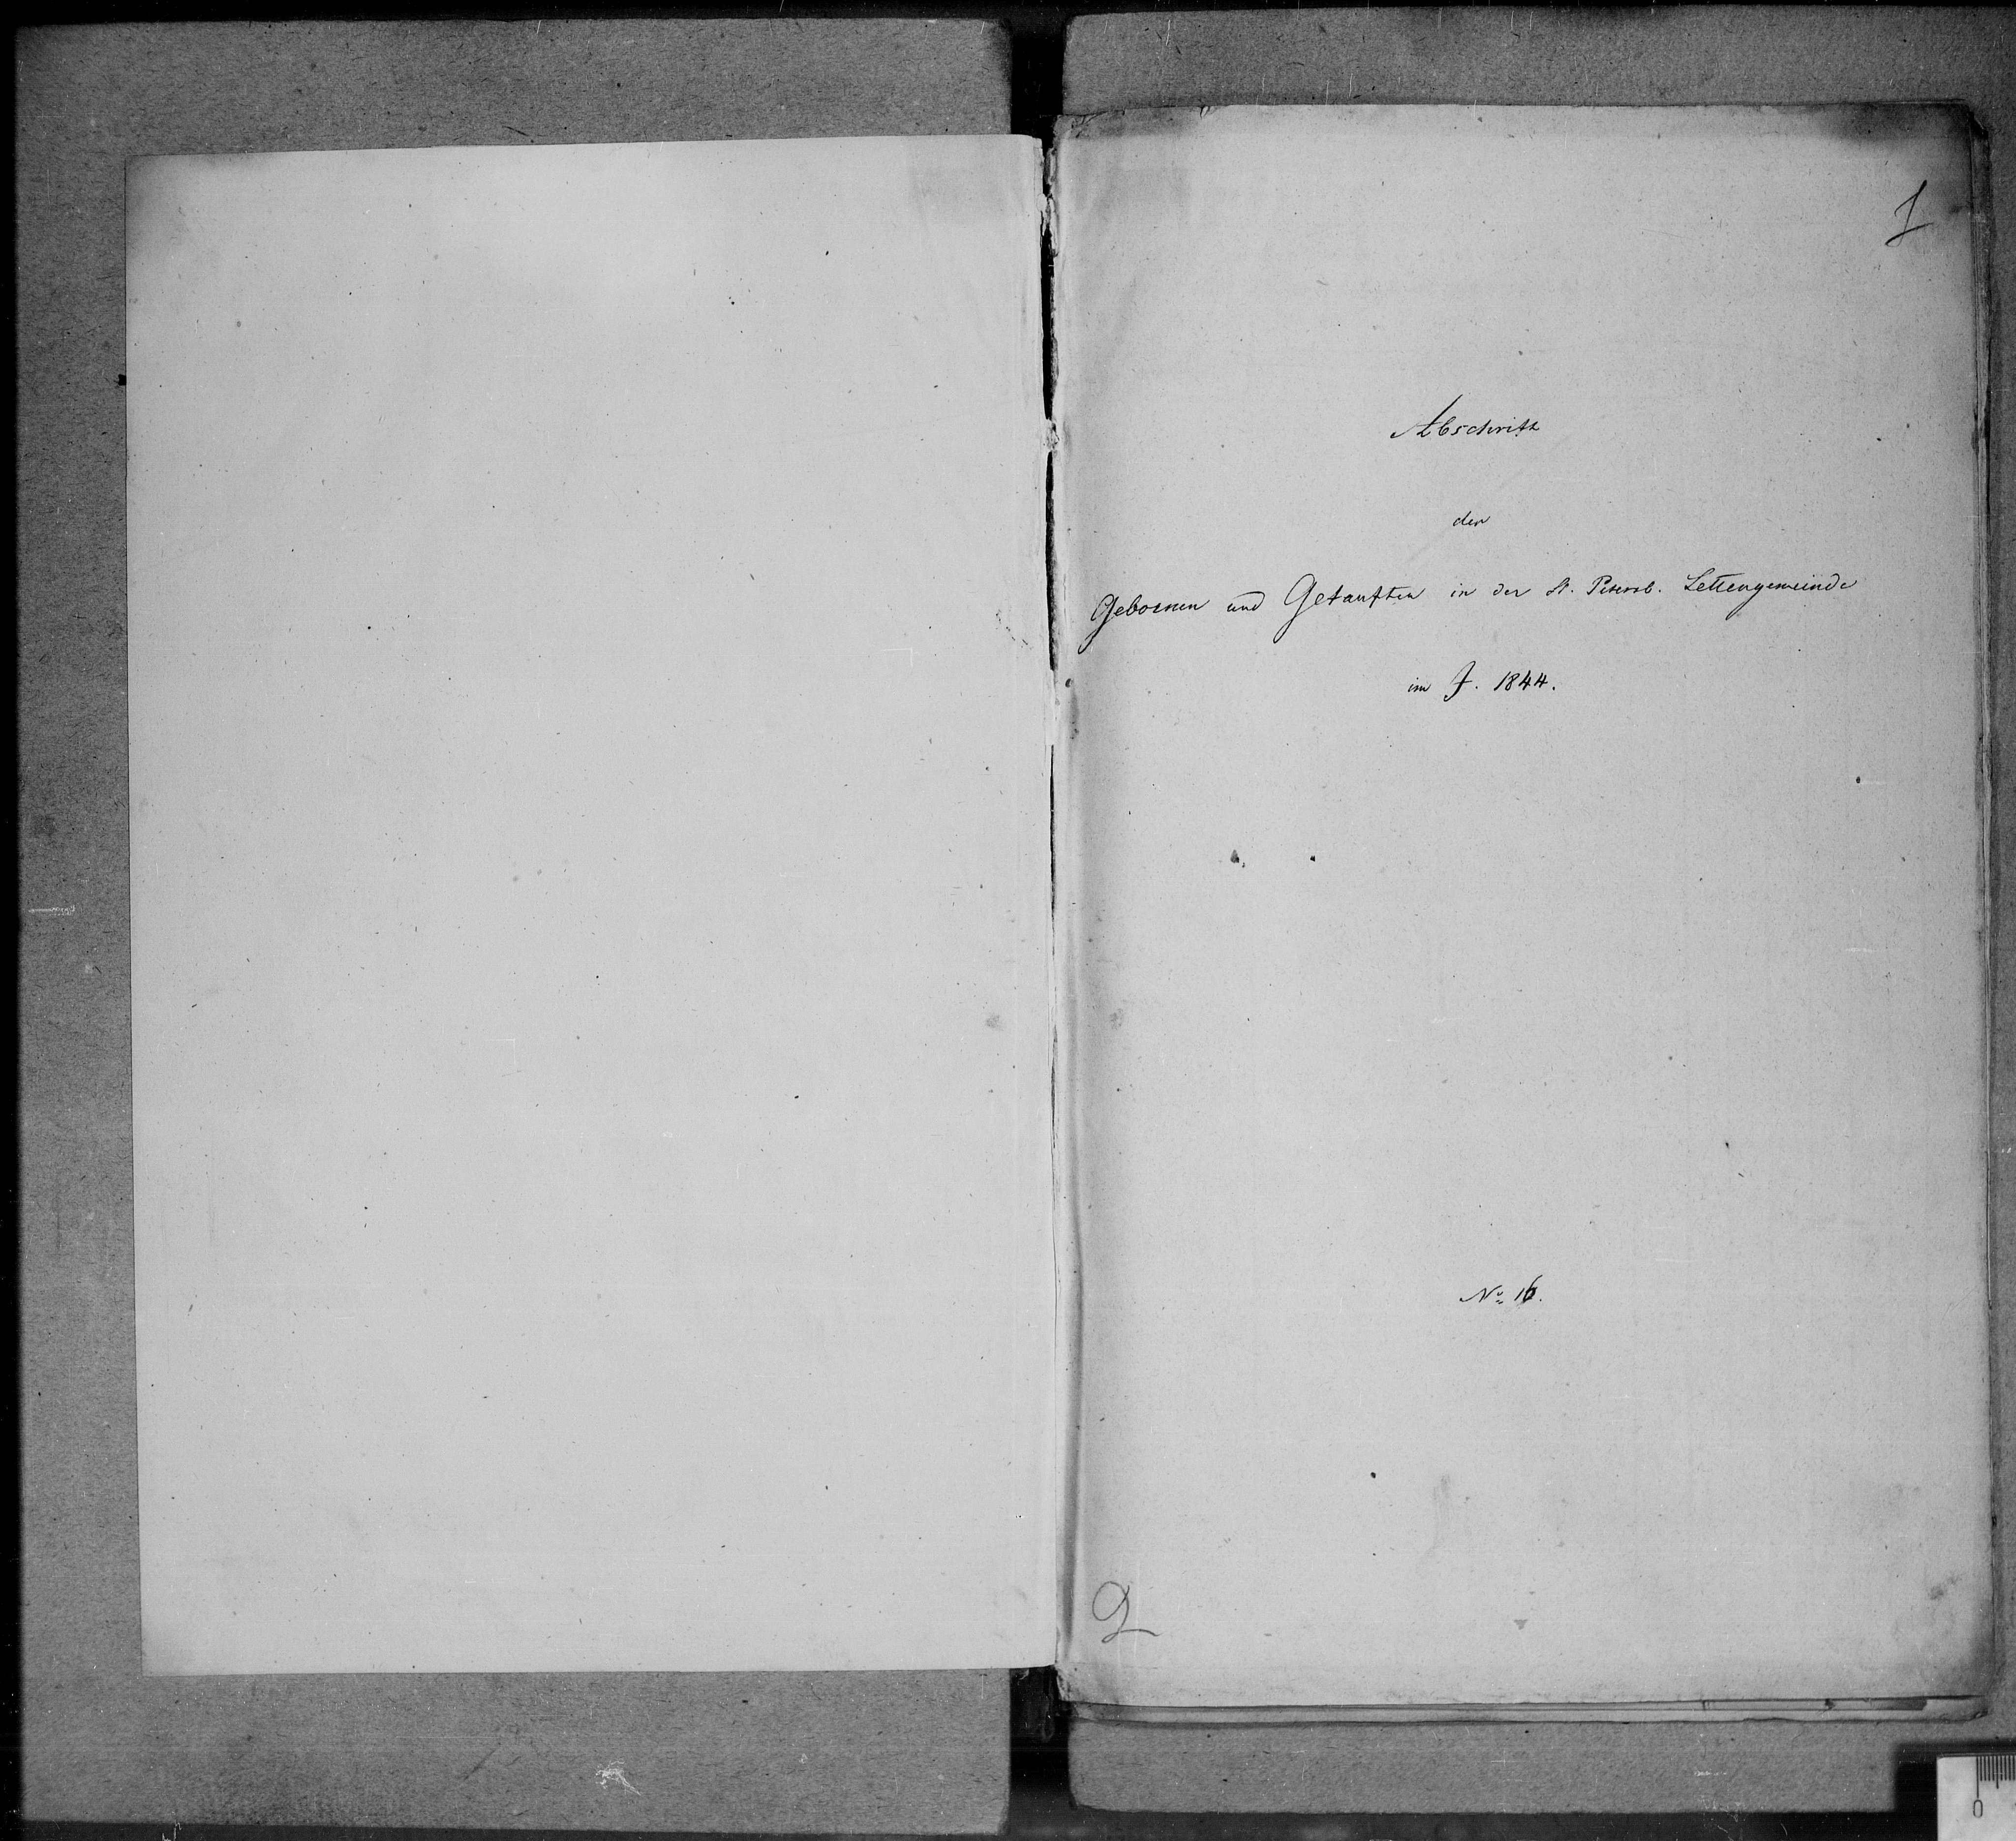 1
Abschrift
der
Gebornen und Getauften in der St. Petersb. Lettengemeinde
im J. 1844.
No 16.
2
0